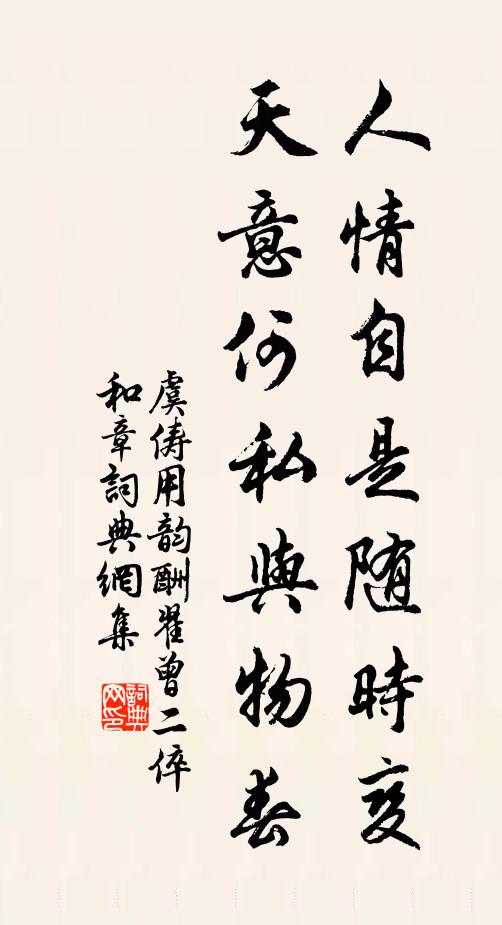 人情自是随時变
天意何私與物春
虞儔用韵酬翟曾二倅
和章詞典網集
詞典网印